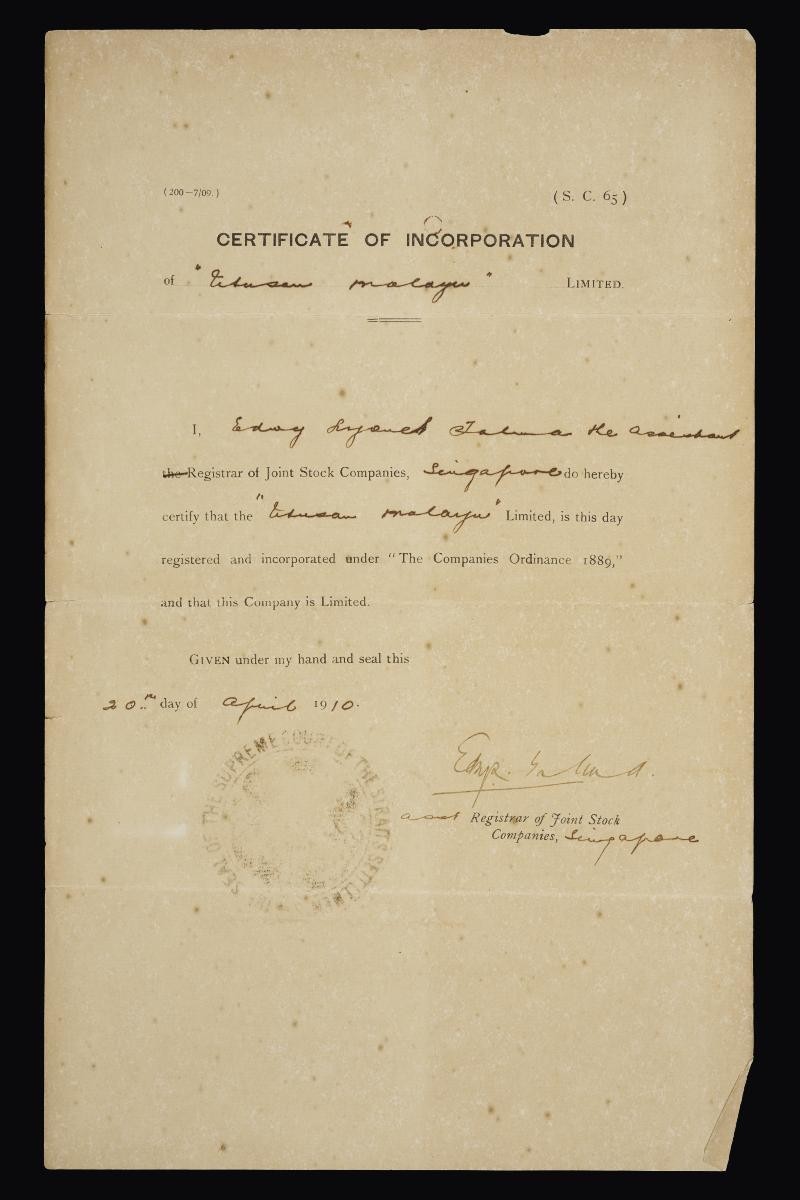 (200—7/09.)
(S. C. 65)
CERTIFICATE OF INCORPORATION
of "Utusan Malayu" LIMITED.
I, Edwy Lyonet Talma the Assistant
the Registrar of Joint Stock Companies, Singapore do hereby
certify that the "Utusan Malayu" Limited, is this day
registered and incorporated under "The Companies Ordinance 1889,"
and that this Company is Limited.
GIVEN under my hand and seal this
20th day of April 1910.
SEAL OF THE SUPREME COURT OF THE STRAITS SETTLEMENTS
Asst Registrar of Joint Stock
Companies, Singapore